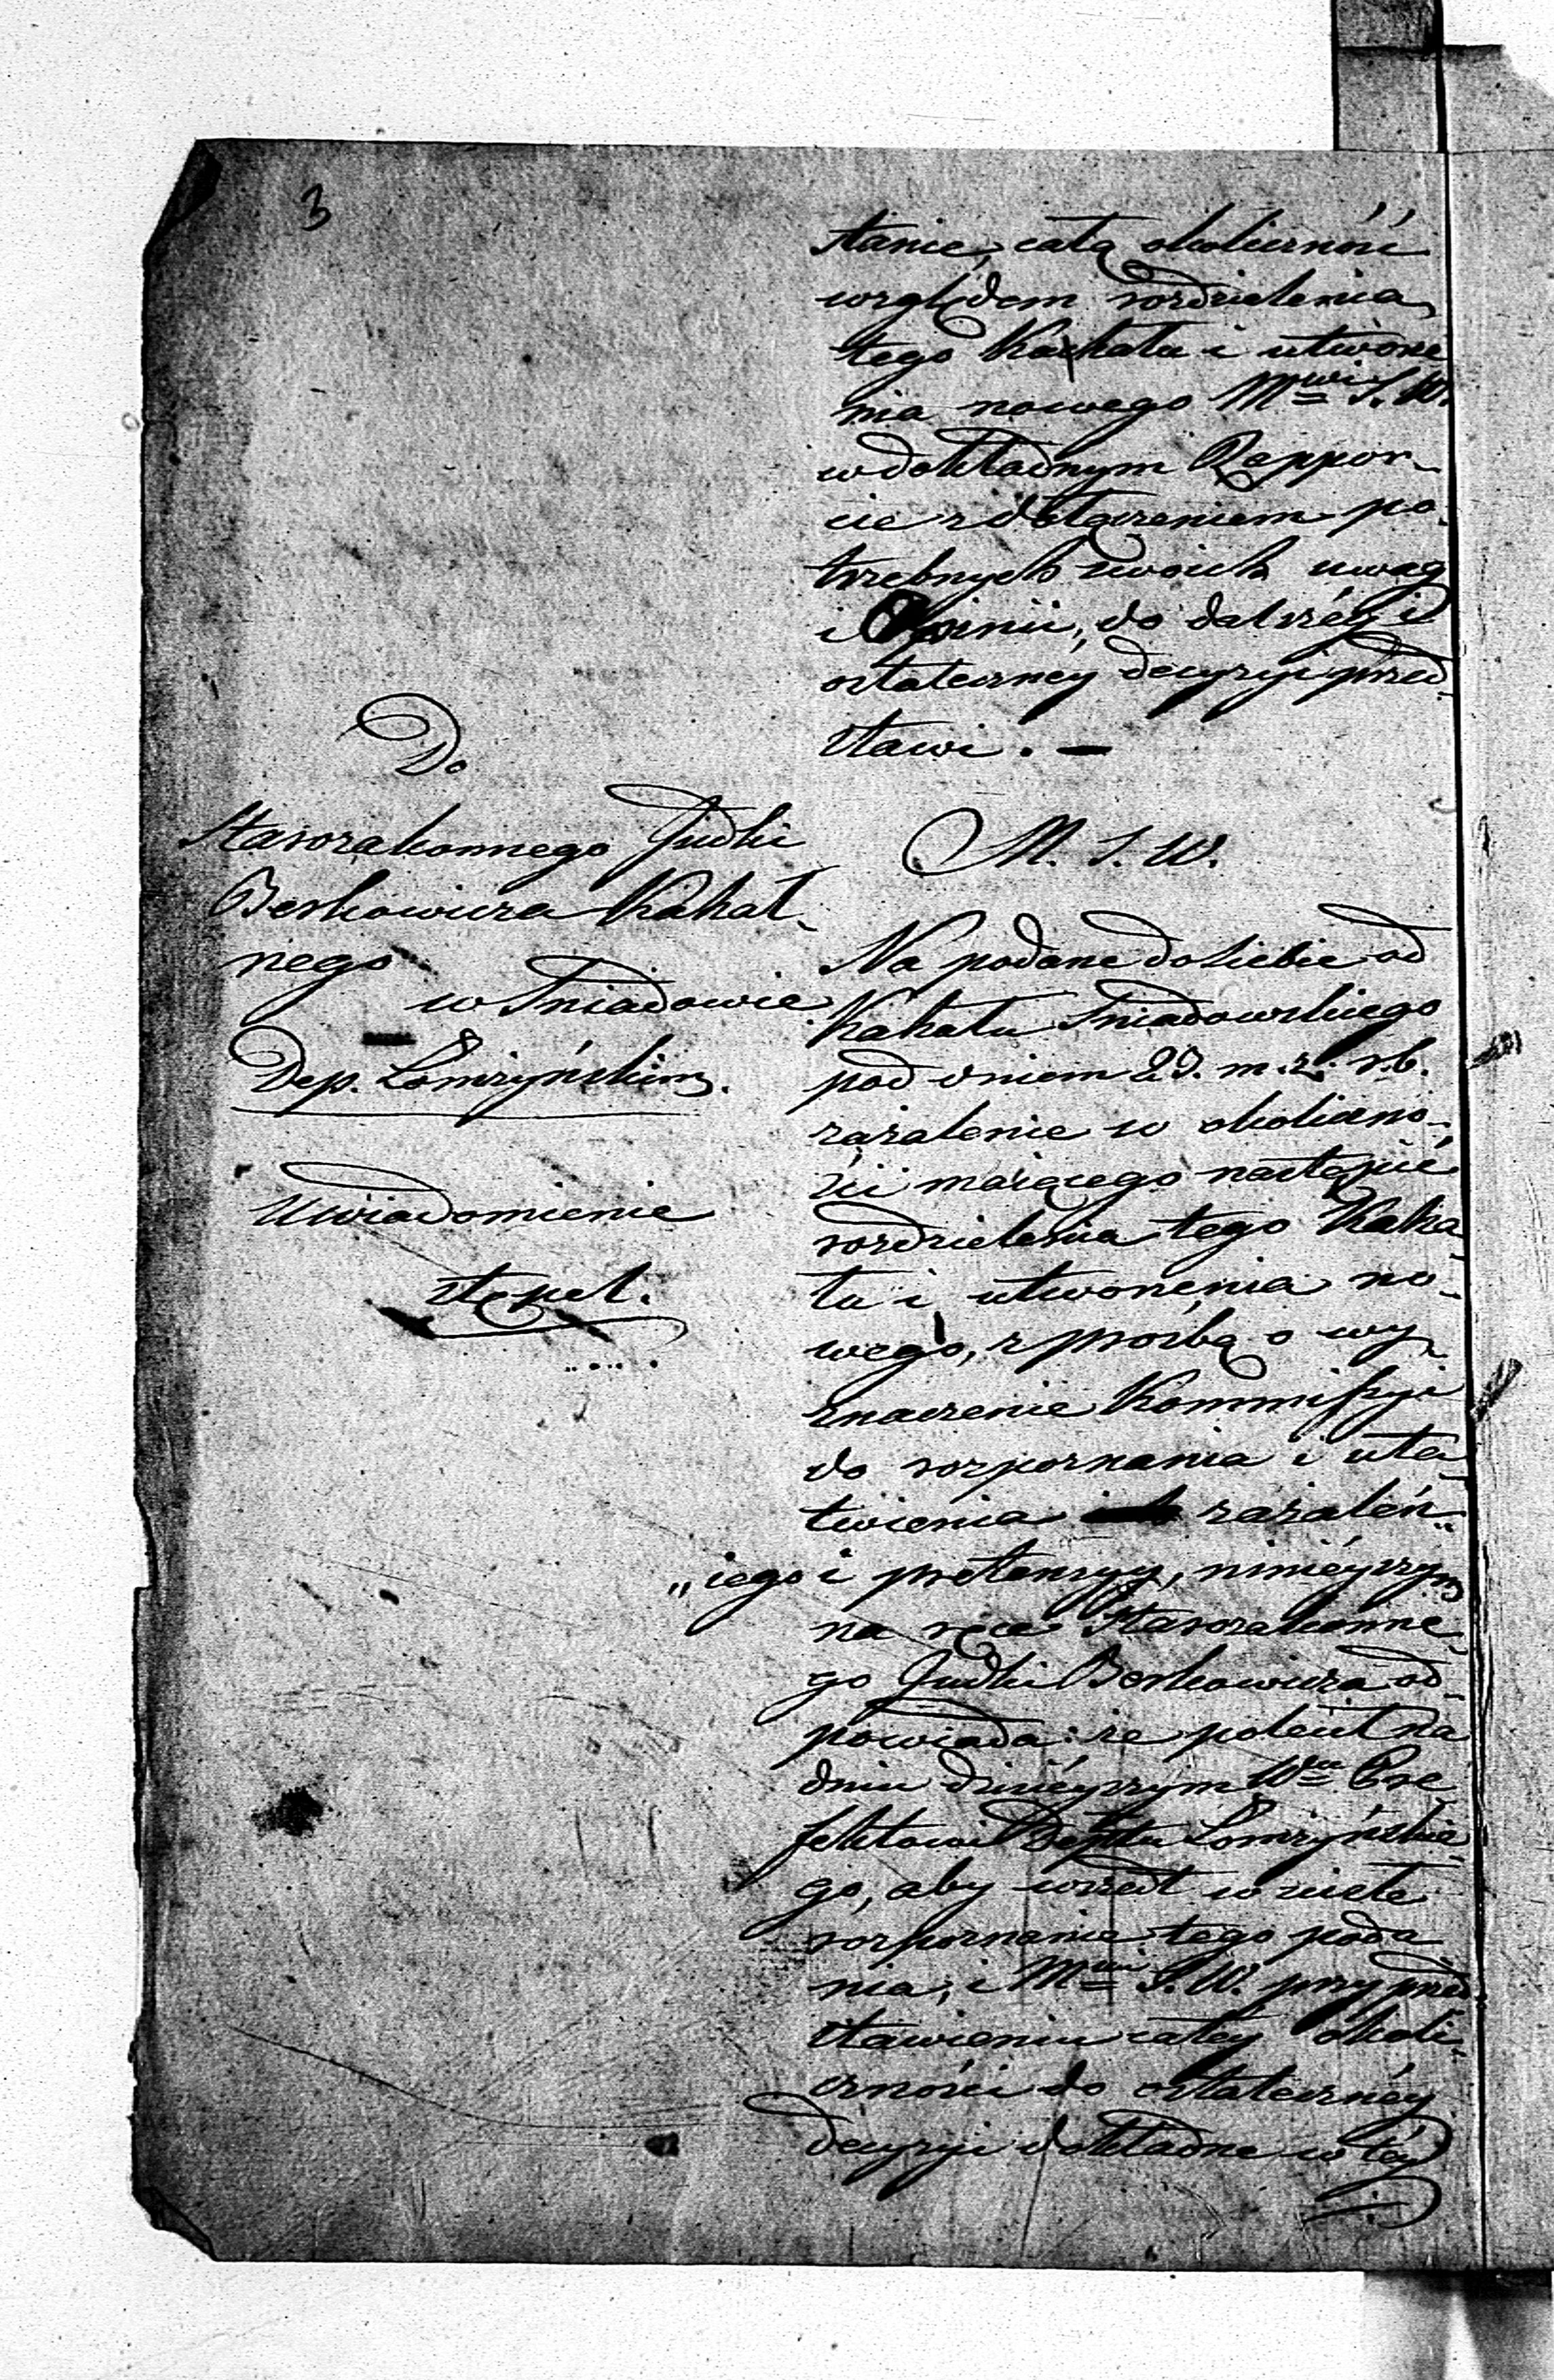 3
stanie, całą okoliczność
względem rozdzielenia
tego Kahału i utworze
nia nowego Mwi S. W.
w dokładnym Rappor-
cie z dołączeniem po-
trzebnych swoich uwag
i Opinii, do dalszéy i
ostateczney decyzyi przed-
stawi. —
Do
Starozakonnego Judki
Berkowicza Kahal-
nego
w Sniadowie
Dep. Łomżyńskim.
Uwiadomienie
stępel.
M. S. W.
Na podane do siebie od
Kahału Sniadowskiego
pod dniem 29. m. z. r. b.
zażalenie w okoliczno-
ści maiącego nastąpić
rozdzielenia tego Kaha-
łu i utworzenia no-
wego, z prośbą o wy-
znaczenie Kommissyi
do rozpoznania i uła-
twienia zażaleń
„iego i pretensyy, ninieyszym
na ręce Starozakonne-
go Judki Berkowicza od-
powiada: że polecił na
dniu dzisieyszym Wmu Pre-
fektowi Deptu Łomżyńskie-
go, aby wszedł w ścisłe
rozpoznanie tego poda
nia, i Mwi S. W. przy przed-
stawieniu całey okoli-
czności do ostateczney
decyzyi dokładne w téy